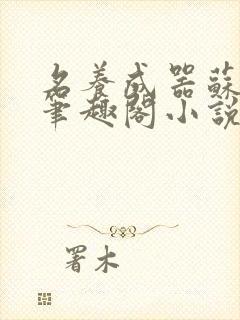 名養成器蘇
筆趣閣小說
署木